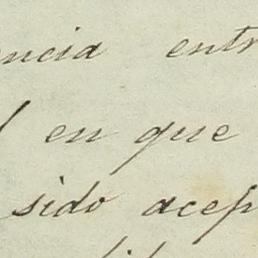 ncia entr
l en que
sido acep